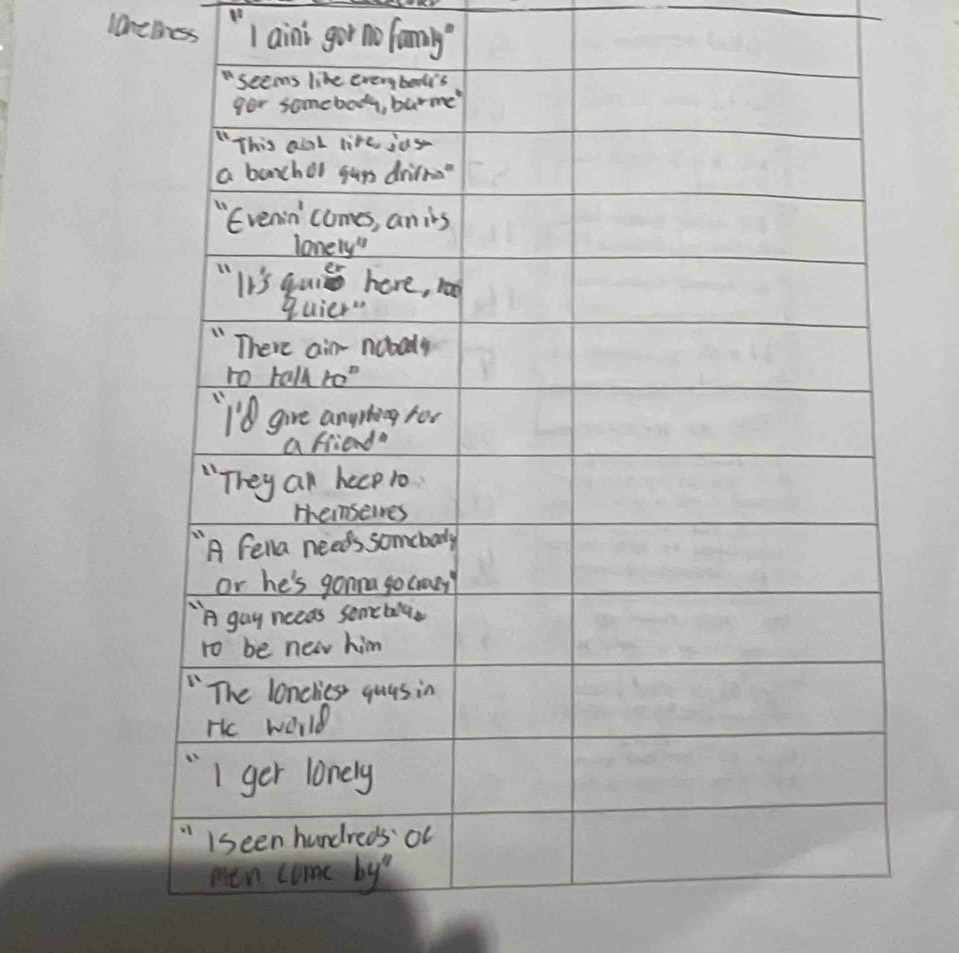 loneliness
"I ain't got no family"
"seems like everybody's
got somebody, but me"
"This ain't like jus
a bunch of guys drinkin"
"Evenin' comes, an it's
lonely"
"It's quiet here, too
quiet"
"There ain nobody
to talk to"
"I'd give anything for
a friend"
"They all keep to
themselves
"A fella needs somebody
or he's gonna go crazy"
"A guy needs somebody
to be near him
"The loneliest guys in
the world
"I get lonely
"I seen hundreds of
men come by"